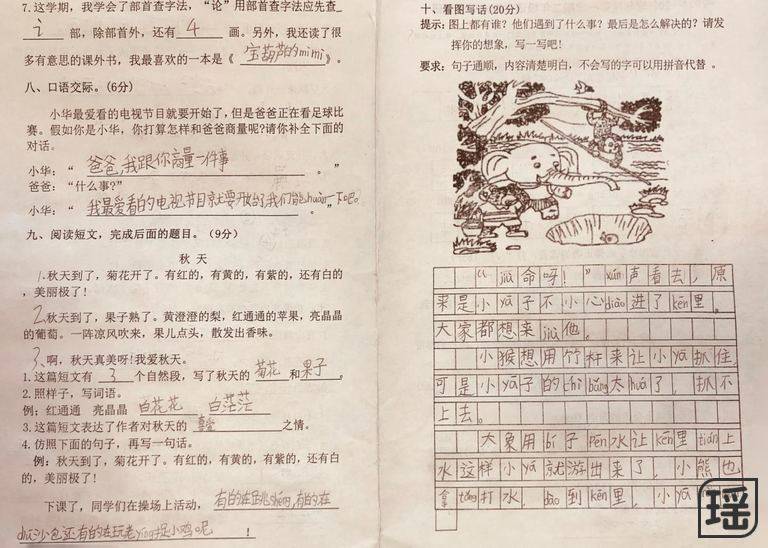 7.这学期，我学会了部首查字法，“论”用部首查字法应先查
讠 部，除部首外，还有 4 画。另外，我还读了很
多有意思的课外书，我最喜欢的一本是《 宝葫芦的mìmì 》。
八、口语交际。(6分)
小华最爱看的电视节目就要开始了，但是爸爸正在看足球比
赛。假如你是小华，你打算怎样和爸爸商量呢?请你补全下面的
对话。
小华：“ 爸爸,我跟你商量一件事 。”
爸爸：“什么事?”
小华：“ 我最爱看的电视节目就要开始了我们能huàn一下吧。 。”
九、阅读短文，完成后面的题目。(9分)
秋 天
1.秋天到了，菊花开了。有红的，有黄的，有紫的，还有白的
，美丽极了！
2.秋天到了，果子熟了。黄澄澄的梨，红通通的苹果，亮晶晶
的葡萄。一阵凉风吹来，果儿点头，散发出香味。
3.啊，秋天真美呀!我爱秋天。
1.这篇短文有 3 个自然段，写了秋天的 菊花 和 果子 。
2.照样子，写词语。
例：红通通 亮晶晶 白花花 白茫茫
3.这篇短文表达了作者对秋天的 喜爱 之情。
4.仿照下面的句子，再写一句话。
例：秋天到了，菊花开了。有红的，有黄的，有紫的，还有白
的，美丽极了！
下课了，同学们在操场上活动， 有的在跳shéng,有的在
diū沙包还有的在玩老yīng捉小鸡呢 ！
十、看图写话(20分)
提示：图上都有谁？他们遇到了什么事？最后是怎么解决的？请发
挥你的想象，写一写吧！
要求：句子通顺，内容清楚明白，不会写的字可以用拼音代替 。
“jiù命呀！”xún声看去，原
来是小yā子不小心diào进了kēn里。
大家都想来jiù他。
小猴想用竹杆来让小yā抓住
可是小yā子的chì bǎng太huá了，抓不
上去。
大象用bí子pēn水让kēn里tián上
水这样小yā就游出来了，小熊也
拿tǒng打水，dào到kēn里，小yā
瑶